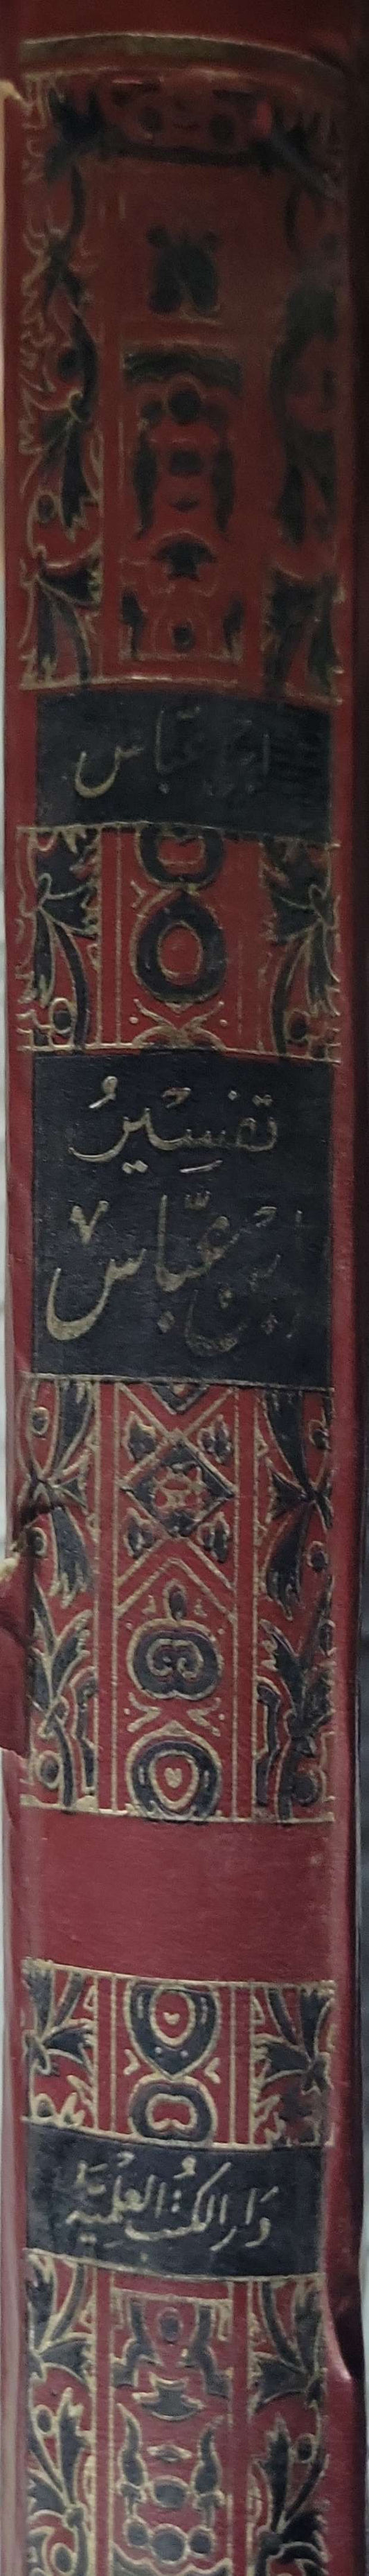 ابن عبّاس
تفسيرُ
ابن عبّاس
دار الكتُب العلميّة